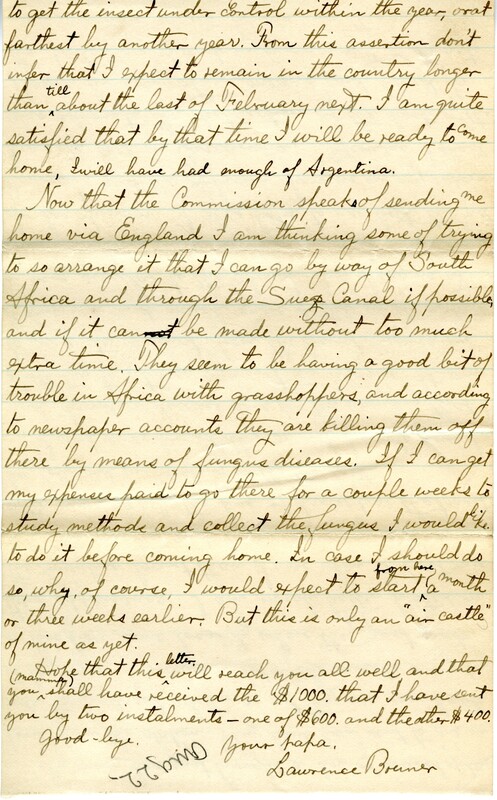 to get the insect under control within the year, or at
farthest by another year. From this assertion don't
infer that I expect to remain in the country longer
than till about the last of February next. I am quite
satisfied that by that time I will be ready to come
home, I will have had enough of Argentina.
Now that the Commission speaks of sending me
home via England I am thinking some of trying
to so arrange it that I can go by way of South
Africa and through the Suez Canal if possible,
and if it can be made without too much
extra time. They seem to be having a good bit of
trouble in Africa with grasshoppers, and according
to newspaper accounts they are killing them off
there by means of fungus diseases. If I can get
my expenses paid to go there for a couple weeks to
study methods and collect the fungus I would like
to do it before coming home. In case I should do
so, why, of course, I would expect to start from here a month
or three weeks earlier. But this is only an "air castle"
of mine as yet.
Hope that this letter will reach you all well and that
you (mamma) shall have received the $1000. that I have sent
you by two instalments – one of $600. and the other $400.
Good-bye. Your papa.
Lawrence Bruner
Aug 22-